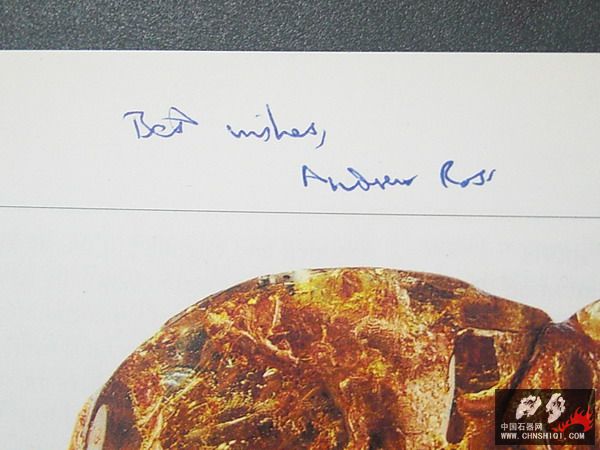 Best wishes,
Andrew Ross
中国石器网
www.CHNSHIQI.COM